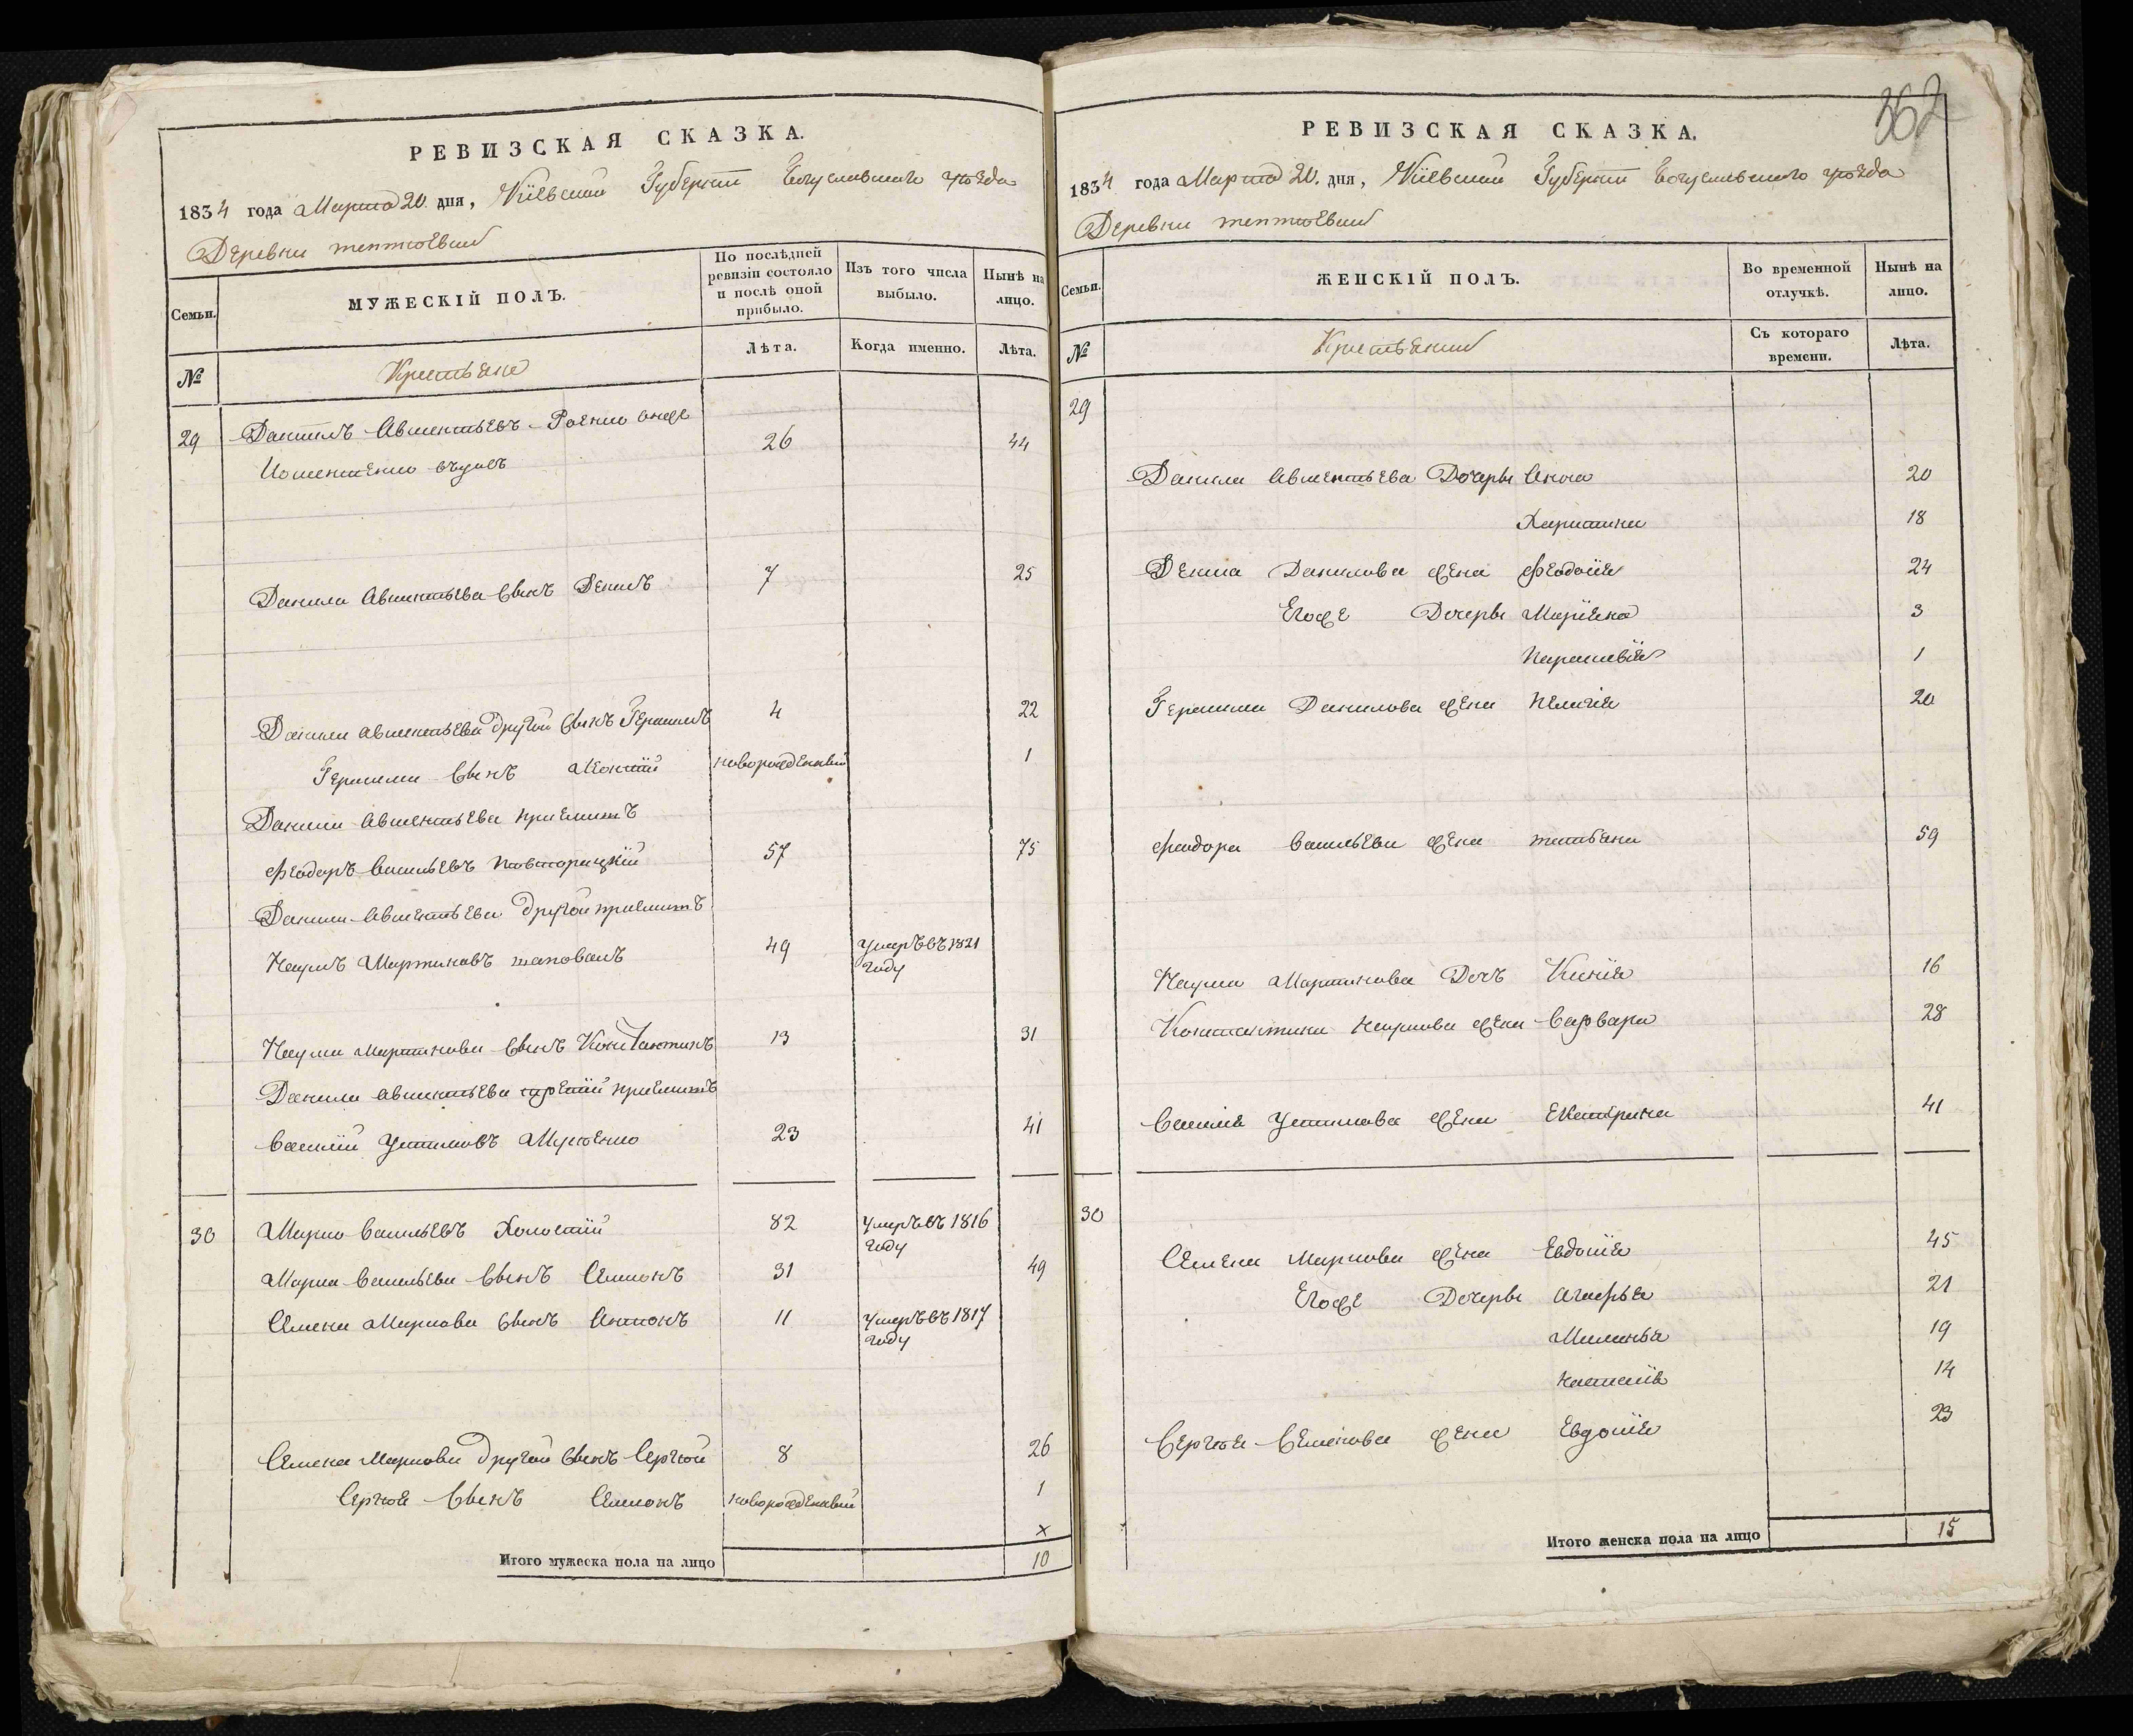 РЕВИЗСКАЯ СКАЗКА.
1834 года Марта 20. дня, Кіевской Губерніи Богуславского уѣзда
Деревни
Семьи.
МУЖЕСКІЙ ПОЛЪ.
По послѣдней ревизіи состояло и послѣ оной прибыло.
Изъ того числа выбыло.
Нынѣ на лицо.
№
Крестьяне
Лѣта.
Когда именно.
Лѣта.
29 Данилъ Авксентьевъ онже 26 44
Данила Авксентьева Сынъ Демилъ 7 25
Данила Авксентьева другой Сынъ Герасимъ 4 22
Герасима Сынъ новорожденный 1
Данила Авксентьева приемышъ
Феодоръ Васильевъ 57 75
Данила Авксентьева другой приемышъ
Наумъ Мартиновъ шаповалъ 49 умеръ въ 1821
году
Наума Мартинова Сынъ Константинъ 13 31
Данила Авксентьева третій приемышъ
Василій Устимовъ 23 41
30 Марко Васильевъ 82 умеръ въ 1816
году
Марка Васильева Сынъ Семионъ 31 49
Семена Маркова Сынъ Антонъ 11 умеръ въ 1817
году
Семена Маркова другой Сынъ Сергѣй 8 26
Сергѣя Сынъ Семионъ новорожденный 1
х
Итого мужеска пола на лицо 10
362
РЕВИЗСКАЯ СКАЗКА.
1834 года Марта 20. дня, Кіевской Губерніи Богуславского уѣзда
Деревни
Семьи.
ЖЕНСКІЙ ПОЛЪ.
Во временной отлучкѣ.
Нынѣ на лицо.
№
Крестьянки
Съ котораго времени.
Лѣта.
29
Данила Авксентьева Дочеры Анна 20
Харитина 18
Данилова жена Феодосія 24
Егоже Дочеры Маріяна 3
Параскевія 1
Герасима Данилова жена Пелагія 20
Феодора Васильева жена татьяна 59
Наума Мартинова Дочъ Ксенія 16
Константина Наумова жена Варвара 28
Василія Устимова жена Екатерина 41
30
Семена Маркова жена Евдокія 45
Егоже Дочеры Агафья 21
Меланья 19
Настасія 14
Сергѣя Семенова жена Евдокія 23
Итого женска пола на лицо 15